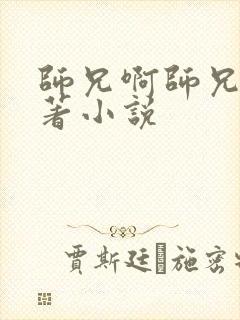 師兄啊師兄
著小說
賈斯廷·施密